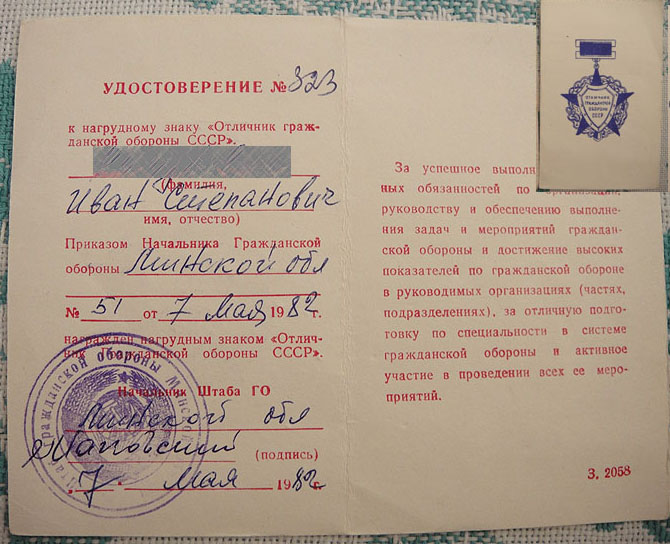 УДОСТОВЕРЕНИЕ № 323
к нагрудному знаку «Отличник граж-
данской обороны СССР».
(фамилия,
Иван Степанович
имя, отчество)
Приказом Начальника Гражданской
обороны Минской обл
№ 51 от 7 мая 1982 г.
награжден нагрудным знаком «Отлич-
ник Гражданской обороны СССР».
Начальник Штаба ГО
Минской обл
(подпись)
7 мая 1982 г.
Штаб гражданской обороны Минской
За успешное выполн
ных обязанностей по организации,
руководству и обеспечению выполне-
ния задач и мероприятий граждан-
ской обороны и достижение высоких
показателей по гражданской обороне
в руководимых организациях (частях,
подразделениях), за отличную подго-
товку по специальности в системе
гражданской обороны и активное
участие в проведении всех ее меро-
приятий.
З. 2058
ОТЛИЧНИК
ГРАЖДАНСКОЙ
ОБОРОНЫ
СССР